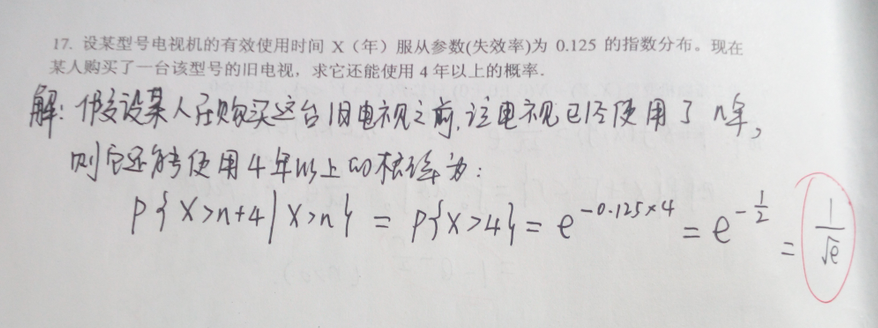 17. 设某型号电视机的有效使用时间 X（年）服从参数(失效率)为 0.125 的指数分布。现在
某人购买了一台该型号的旧电视，求它还能使用 4 年以上的概率.
解: 假设某人在购买这台旧电视之前,该电视已经使用了 n年,
则它还能使用4年以上的概率为:
P{X>n+4|X>n} = P{X>4} = e^{-0.125×4} = e^{-\frac{1}{2}} = \frac{1}{\sqrt{e}}